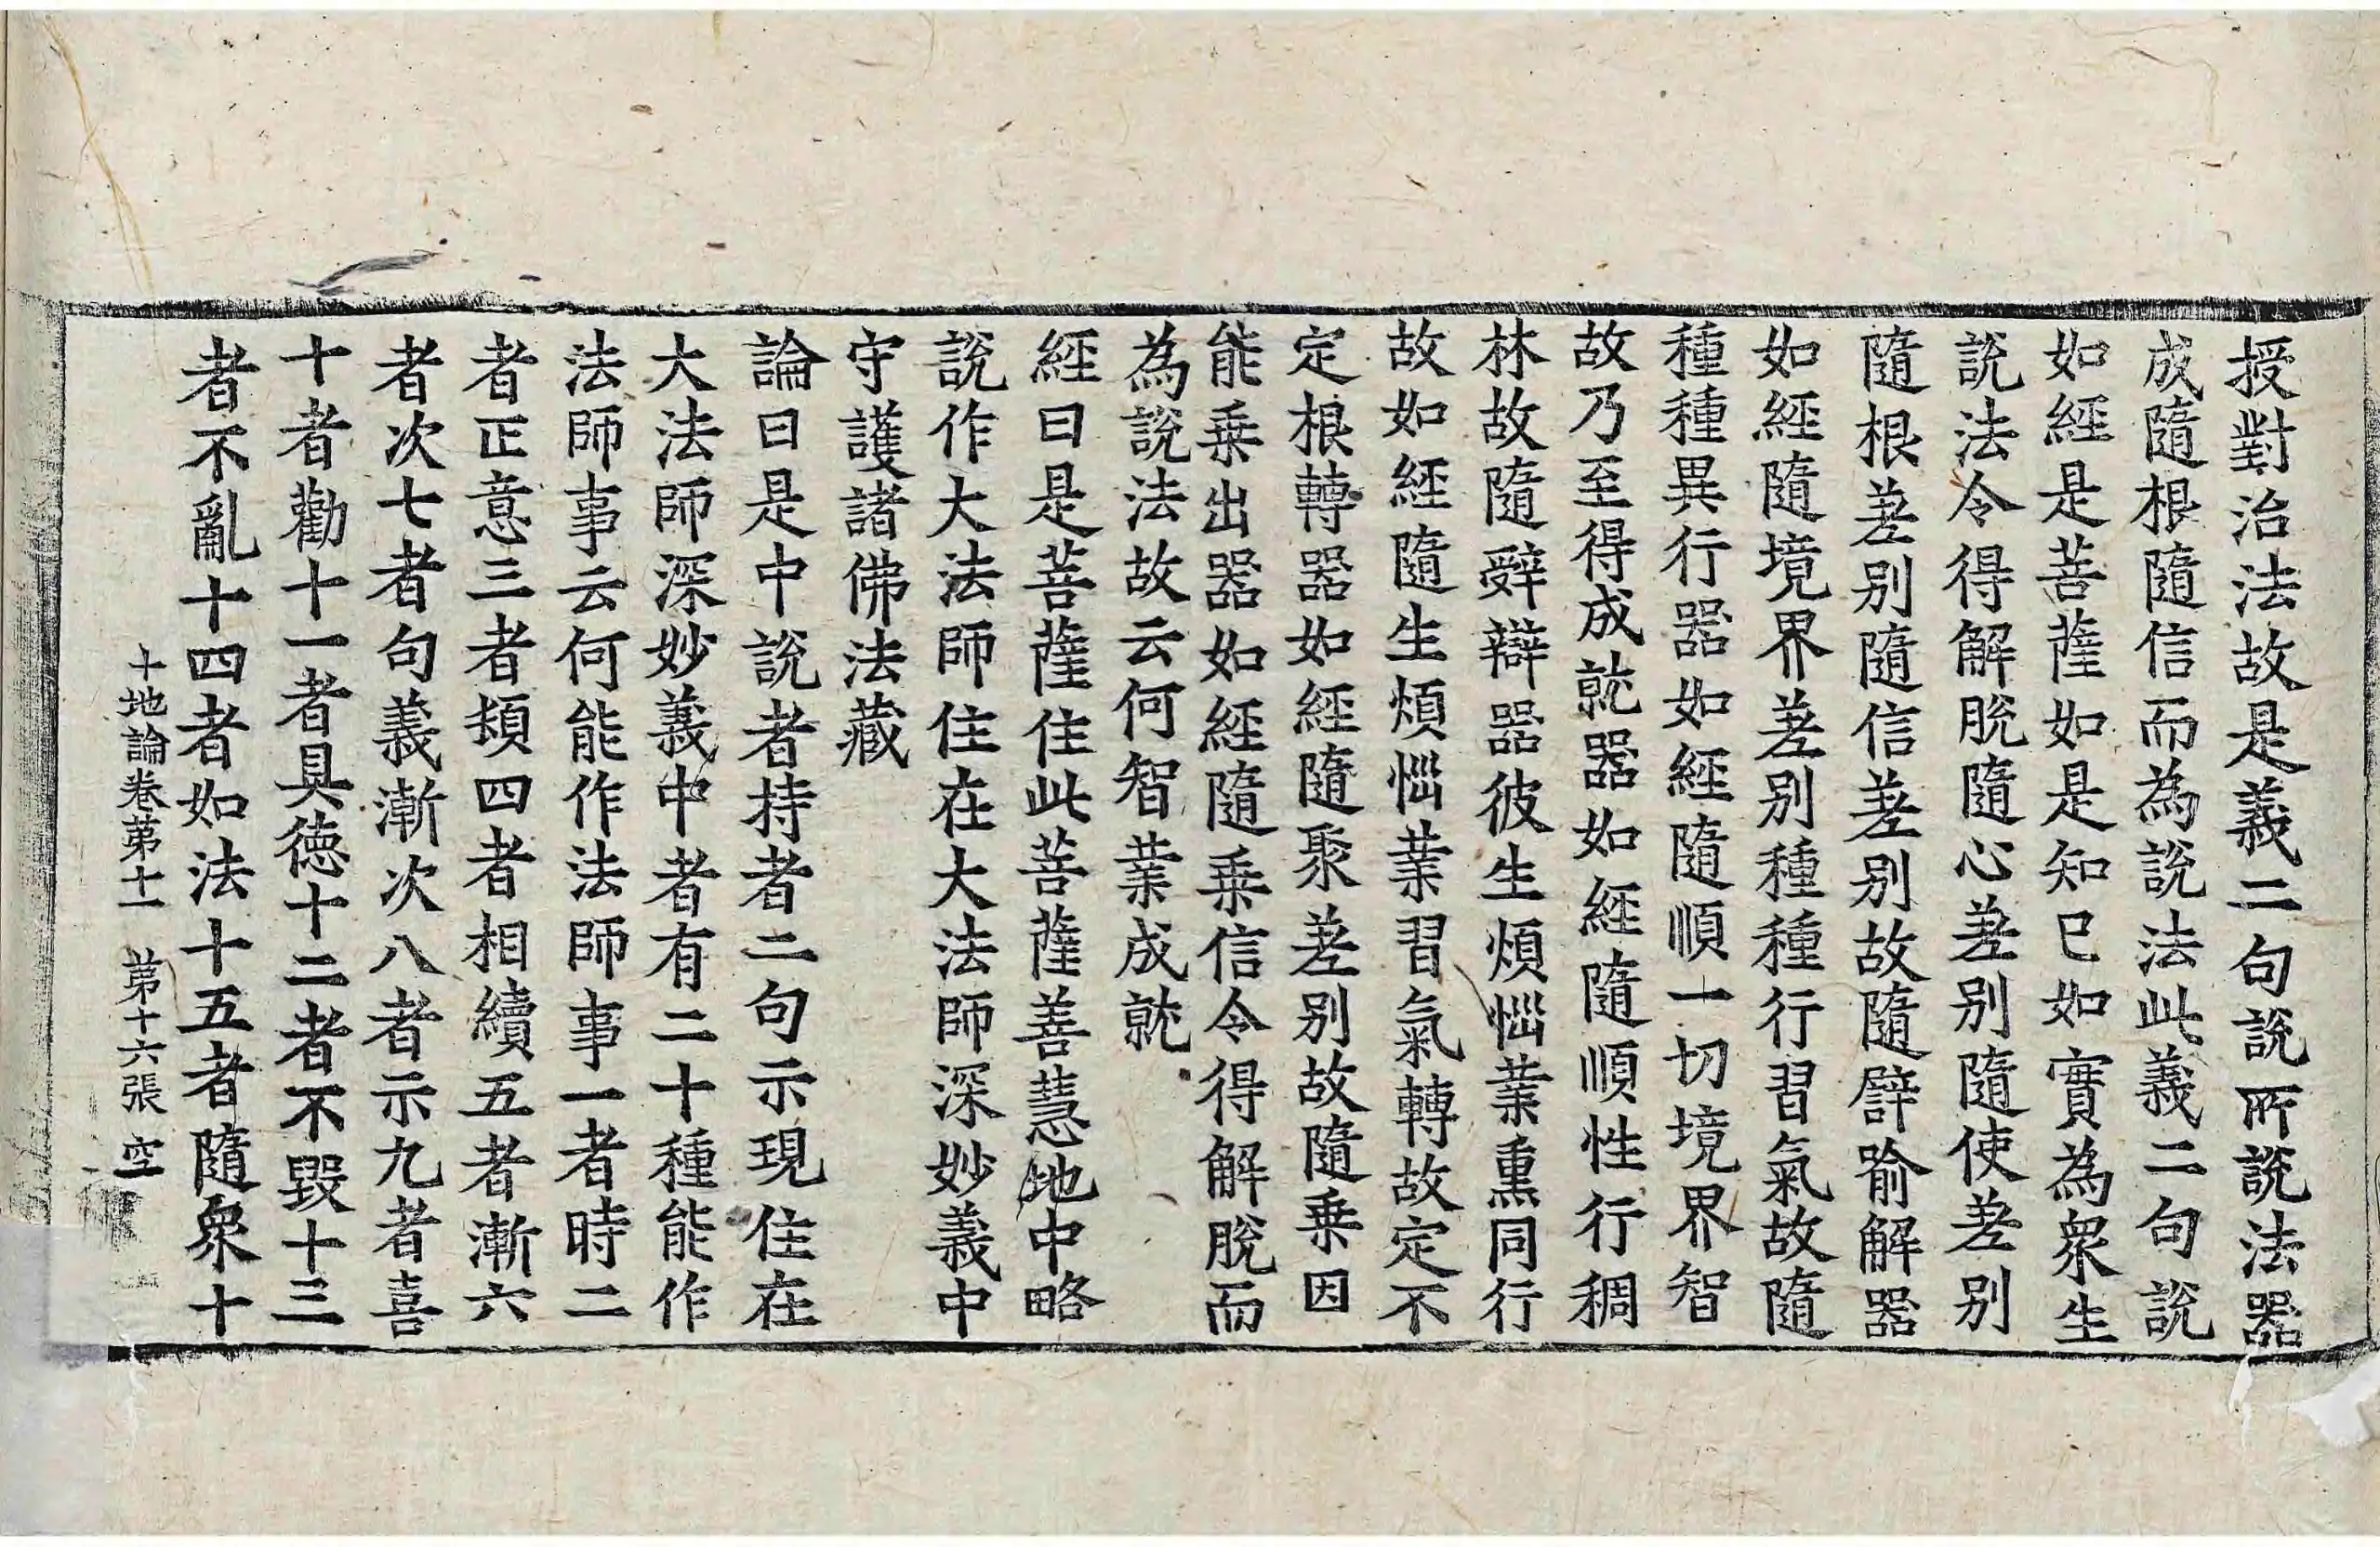 授對治法故是義二句說所說法器
成隨根隨信而為說法此義二句說
如經是菩薩如是知已如實為衆生
說法令得解脫隨心差別隨使差別
隨根差別隨信差別故隨譬喻解器
如經隨境界差別種種行習氣故隨
種種異行器如經隨順一切境界智
故乃至得成就器如經隨順性行稠
林故隨辭辯器彼生煩惱業熏同行
故如經隨生煩惱業習氣轉故定不
定根轉器如經隨聚差別故隨乗因
能乗出器如經隨乗信令得解脫而
為說法故云何智業成就
經曰是菩薩住此菩薩善慧地中略
說作大法師住在大法師深妙義中
守護諸佛法藏
論曰是中說者持者二句示現住在
大法師深妙義中者有二十種能作
法師事云何能作法師事一者時二
者正意三者頻四者相續五者漸六
者次七者句義漸次八者示九者喜
十者勸十一者具德十二者不毀十三
者不亂十四者如法十五者隨衆十
十地論卷第十一 第十六張 空